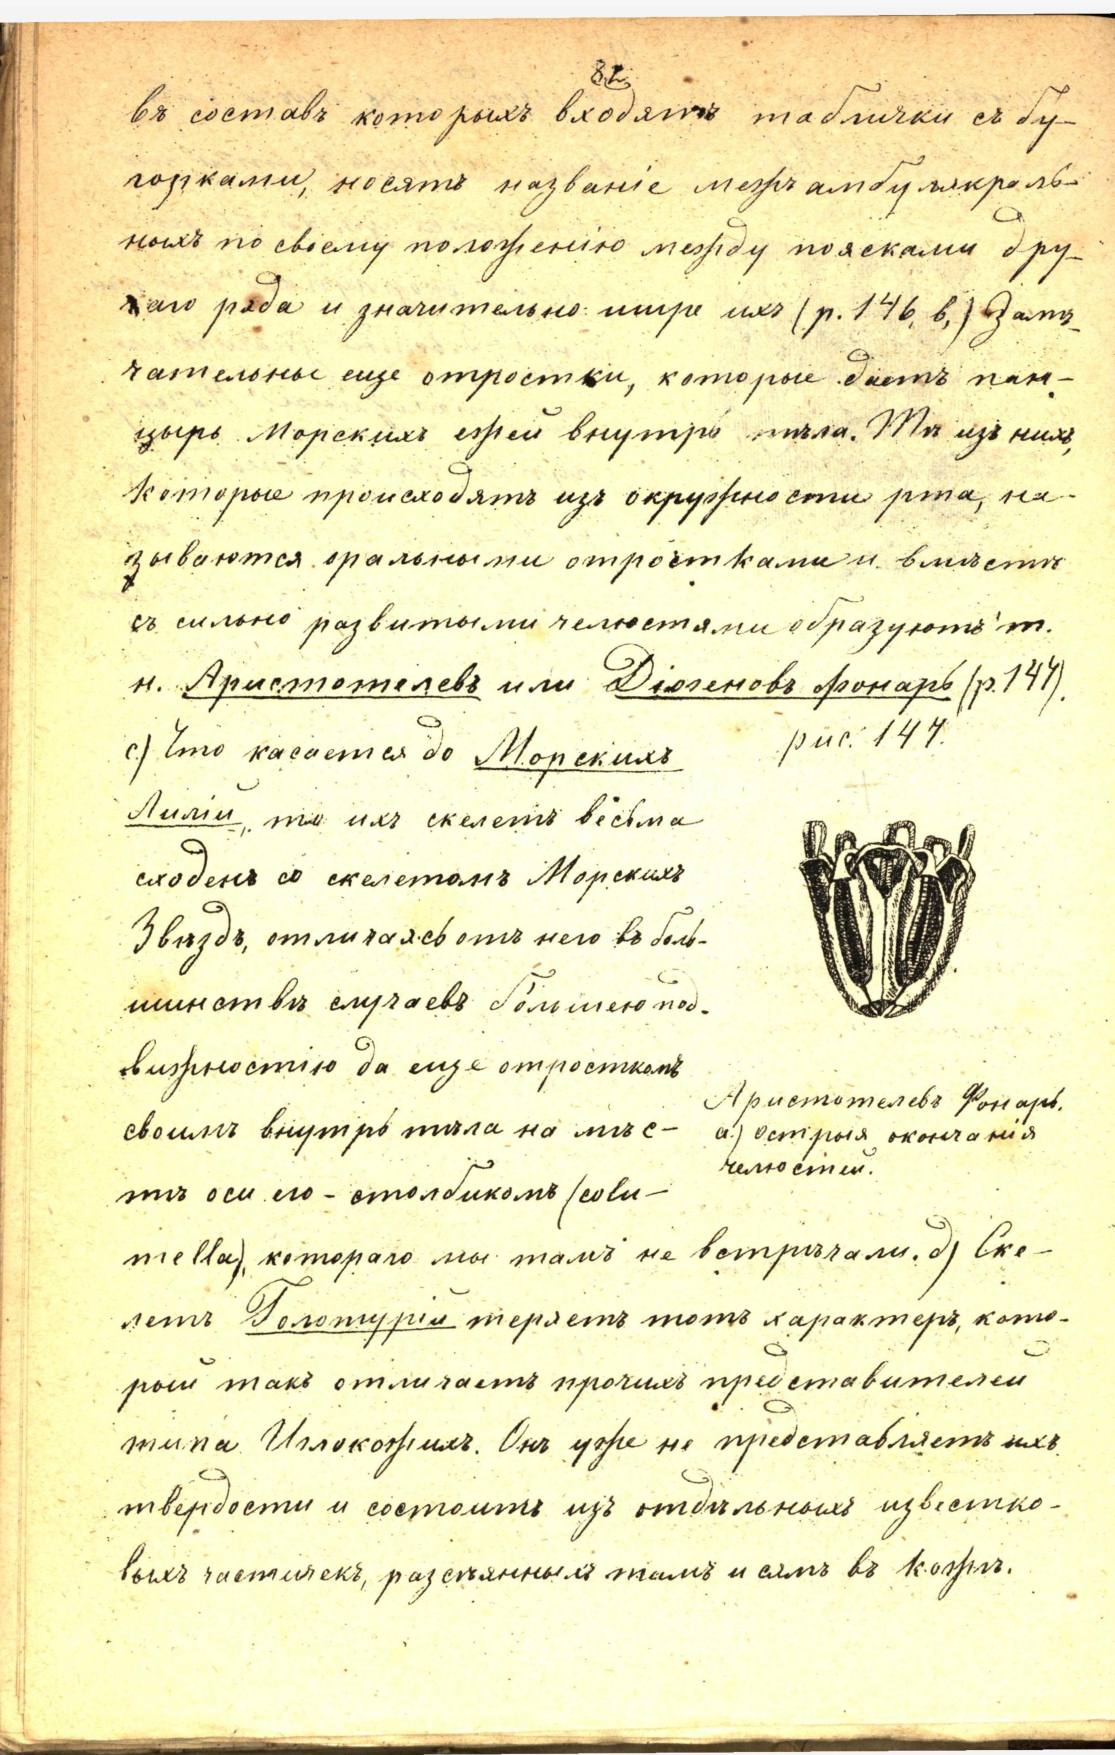 82
въ составъ которыхъ входятъ таблички съ бу-
горками, носятъ названіе межъамбулякраль-
ныхъ по своему положенію между поясками дру-
гаго ряда и значительно шире ихъ (р. 146, в,) Замѣ-
чательные еще отростки, которые даетъ пан-
цырь Морскихъ ежей внутрь тѣла. Тѣ изъ нихъ,
которые происходятъ изъ окружности рта, на-
зываются оральными отростками и вмѣстѣ
съ сильно развитыми челюстями образуютъ т.
н. Аристотелевъ или Діогеновъ фонарь (р. 147).
с) Что касается до Морскихъ
рис. 147.
Лилій, то ихъ скелетъ весьма
сходенъ со скелетомъ Морскихъ
Звѣздъ, отличаясь отъ него въ боль-
шинствѣ случаевъ большею под-
вижностію да еще отросткомъ
своимъ внутрь тѣла на мѣс-
тѣ оси его - столбикомъ (colu-
Аристотелевъ Фонарь.
а) острыя окончанія
челюстей.
mella), котораго мы тамъ не встрѣчали. д) Ске-
летъ Голотурій теряетъ тотъ характеръ, кото-
рый такъ отличаетъ прочихъ представителей
типа Иглокожихъ. Онъ уже не представляетъ ихъ
твердости и состоитъ изъ отдѣльныхъ известко-
выхъ частичекъ, разсѣянныхъ тамъ и сямъ въ кожѣ.